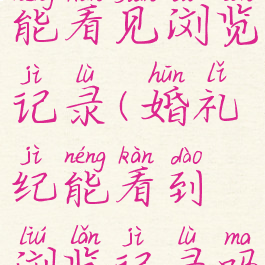 能看见浏览
jì lù hūn lǐ
记录(婚礼
jì néng kàn dào
纪能看到
liú lǎn jì lù ma
浏览记录吗